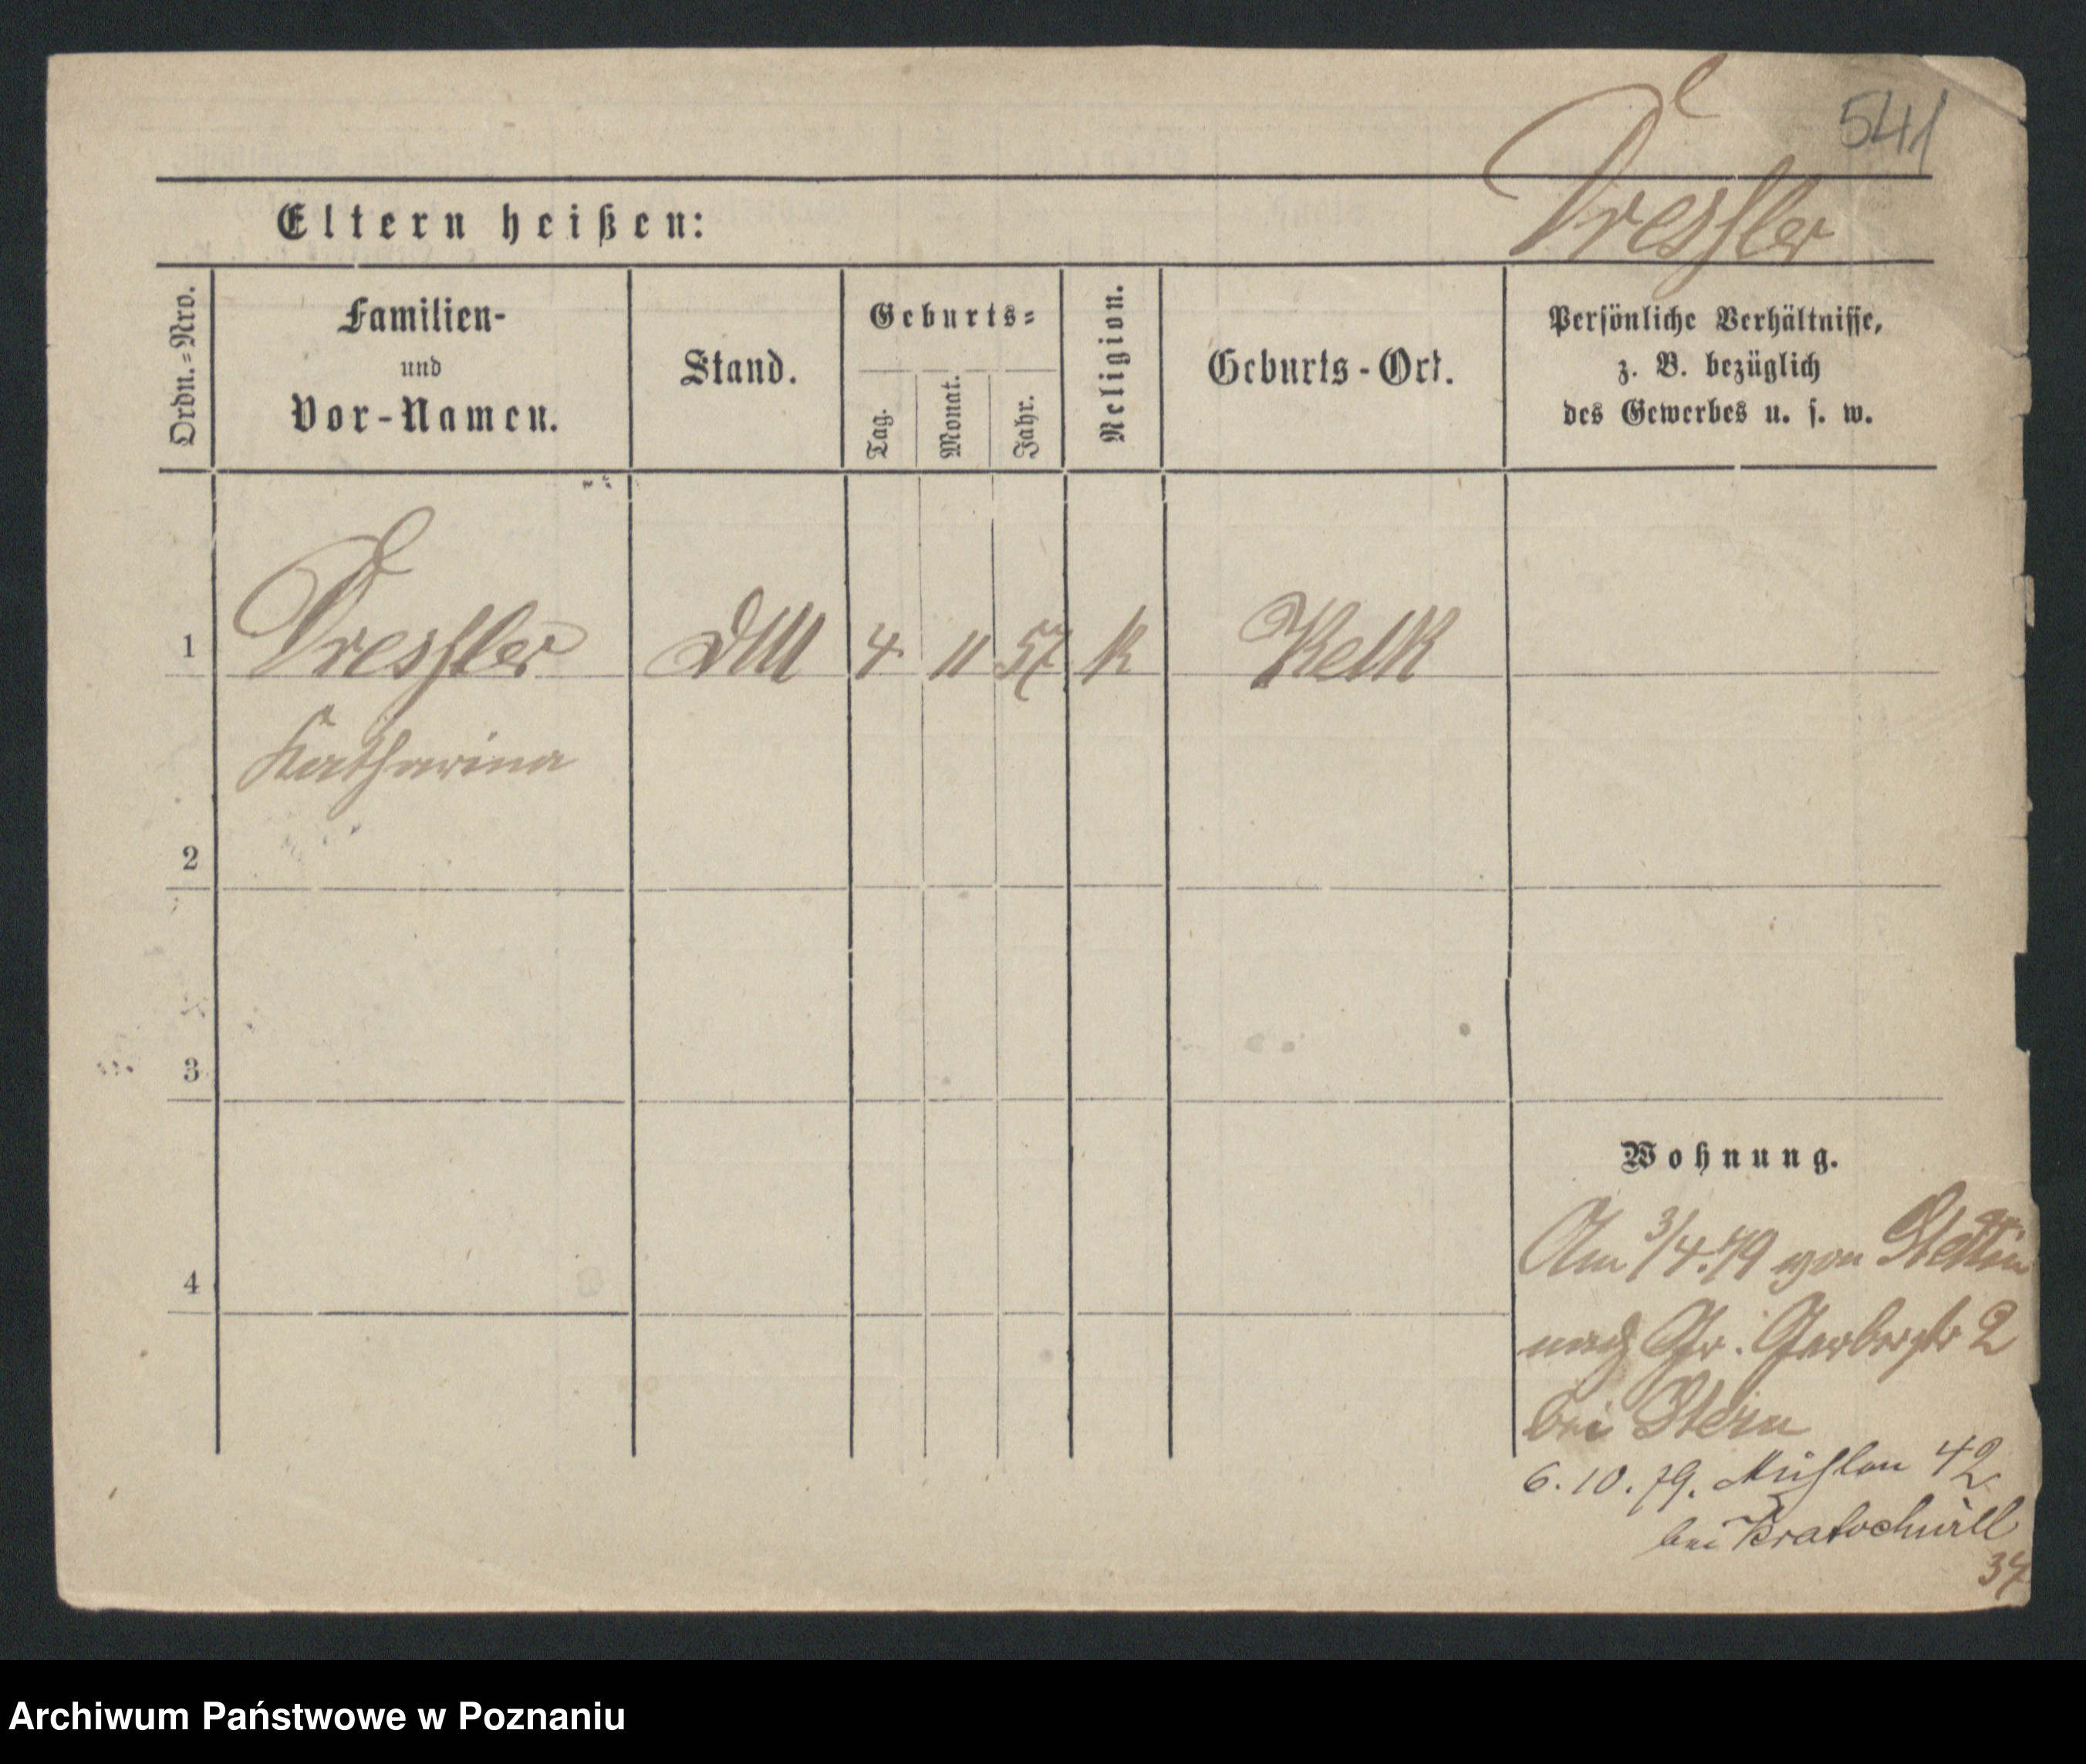 541
Dressler
Eltern heißen:
Ordn.=Nro.
Familien-
und
Vor-Namen.
Stand.
Geburts=
Tag.
Monat.
Jahr.
Religion.
Geburts-Ort.
Persönliche Verhältnisse,
z. B. bezüglich
des Gewerbes u. s. w.
1 Dressler 4 11 57 K
Katharina
2
3
4
Wohnung.
Am 3/4.79 von Stettin
nach Gr. Gerberstr 2
bei Stern
6.10.79. Mühlen 42
bei Kratochwill
34
Archiwum Państwowe w Poznaniu